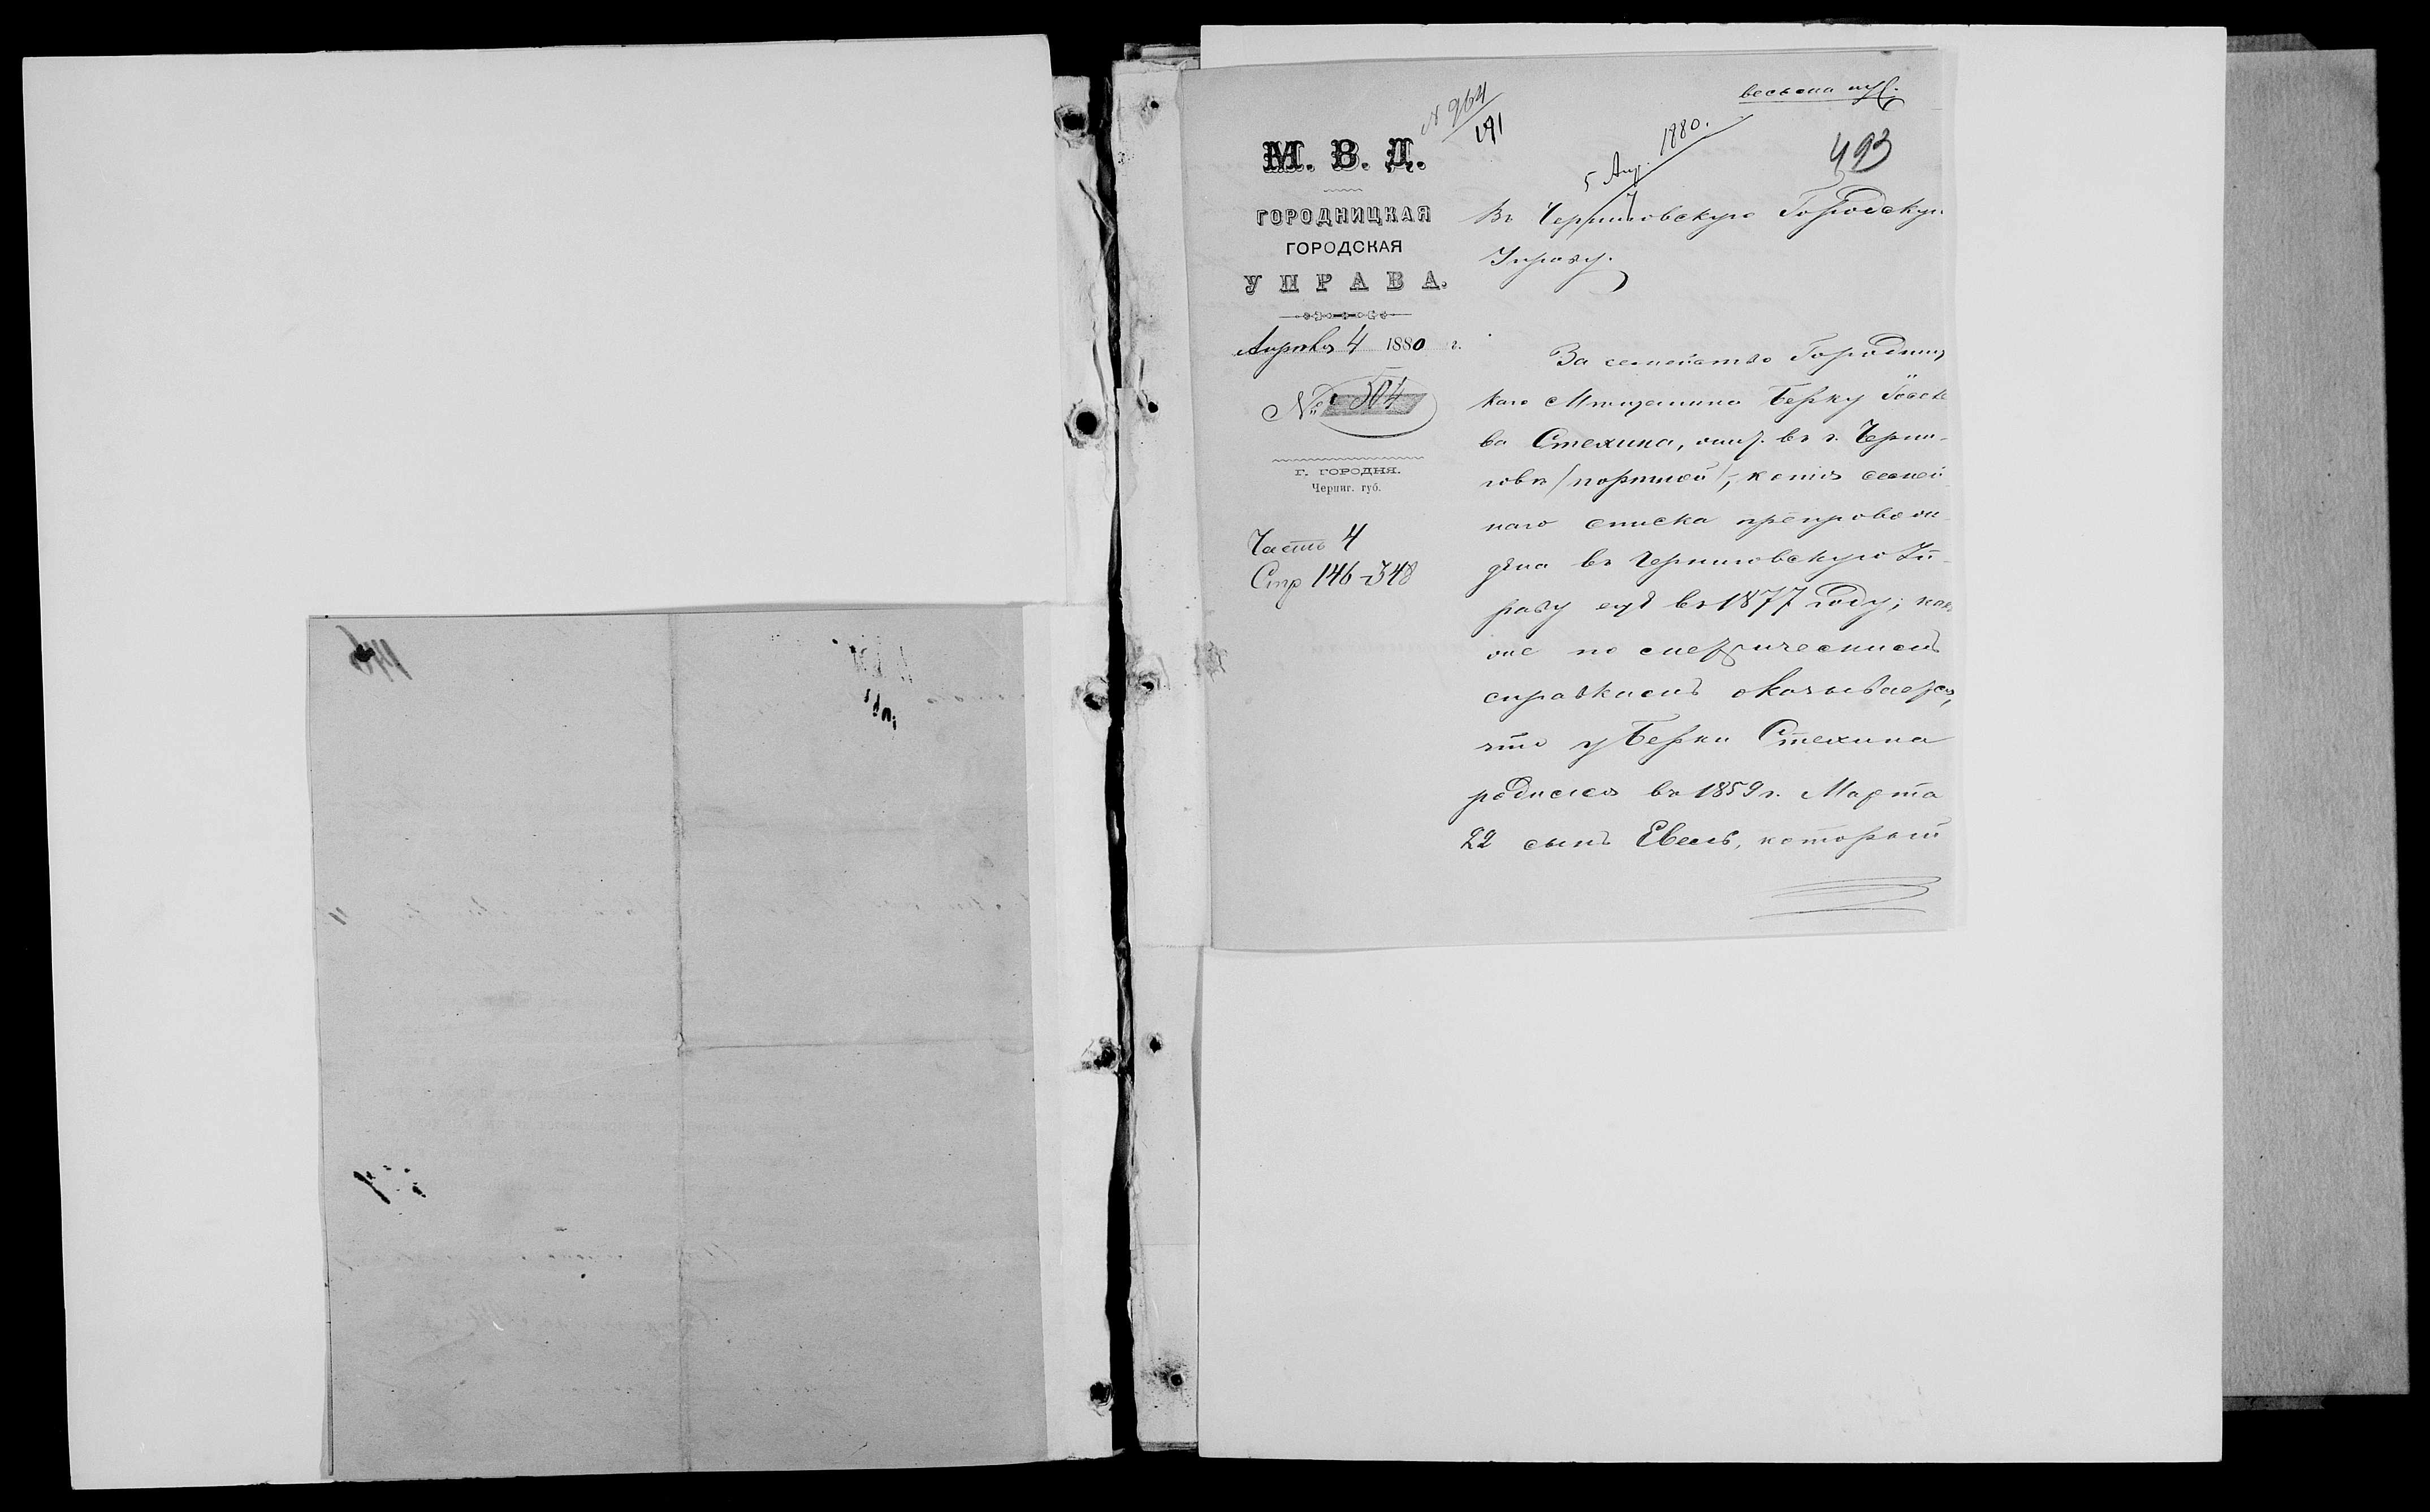 весьма нуж.
№ 964
М. В. Д.
5 Апр. 1880.
493
ГОРОДНИЦКАЯ
ГОРОДСКАЯ
УПРАВА.
Апрѣля 4 1880 г.
№ 504
г. ГОРОДНЯ.
Черниг. губ.
Часть 4
Стр 146-348
Въ Черниговскую Городскую
Управу.
За семейство Городниц
каго Мѣщанина Берку
ва Стехина, въ г. Черни-
говѣ (портной), копія семей
наго списка препровож
дена въ Черниговскую Уп
раву ещѣ въ 1877 году;
нынѣ по метрическимъ
справкамъ оказывается,
что у Берки Стехина
родился въ 1859 г. Марта
22 сынъ Евель, который
146